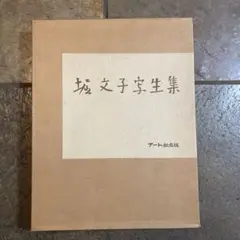 堀文子写生集
アート出版社